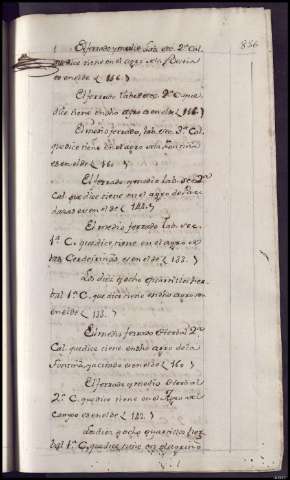 856
El ferrado y medio Lab. sec. 2ª Cal.
que dice tiene en el agro de la
es en el de ( 166. )
El ferrado Lab. sec. 2ª C. que
dice tiene en dho agro es en el de ( 166. )
El medio ferrado, Lab. sec. 2ª Cal.
que dice tiene en el agro de la fontiña
es en el de ( 160. )
El ferrado y medio Lab. sec. 2ª
Cal. que dice tiene en el agro de
es en el de ( 144. )
El medio ferrado Lab. sec.
1ª C. que dice tiene en el agro
es en el de ( 133. )
Los diez y ocho quartillos her
bal 1ª C. que dice tiene en dho agro es en
en el de ( 133. )
El medio ferrado herbal 2ª
Cal. que dice tiene en dho agro de la
fontiña es en el de ( 160. )
El ferrado y medio herbal
2ª C. que dice tiene en el
es en el de ( 142. )
Los diez y ocho quartillos her
bal 1ª C. que dice tiene en el